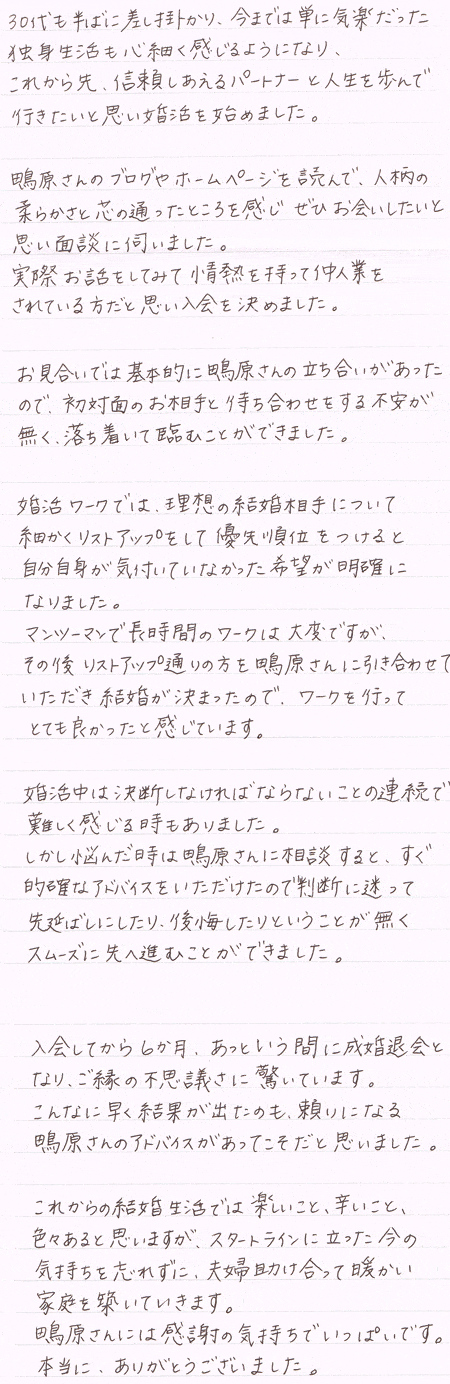 30代も半ばに差し掛かり、今までは単に気楽だった
独身生活も心細く感じるようになり、
これから先、信頼しあえるパートナーと人生を歩んで
行きたいと思い婚活を始めました。
鴨原さんのブログやホームページを読んで、人柄の
柔らかさと芯の通ったところを感じ ぜひお会いしたいと
思い面談に伺いました。
実際お話をしてみて情熱を持って仲人業を
されている方だと思い入会を決めました。
お見合いでは基本的に鴨原さんの立ち合いがあった
ので、初対面のお相手と待ち合わせをする不安が
無く、落ち着いて臨むことができました。
婚活ワークでは、理想の結婚相手について
細かくリストアップをして優先順位をつけると
自分自身が気付いていなかった希望が明確に
なりました。
マンツーマンで長時間のワークは大変ですが、
その後リストアップ通りの方を鴨原さんに引き合わせて
いただき結婚が決まったので、ワークを行って
とても良かったと感じています。
婚活中は決断しなければならないことの連続で
難しく感じる時もありました。
しかし悩んだ時は鴨原さんに相談すると、すぐ
的確なアドバイスをいただけたので判断に迷って
先延ばしにしたり、後悔したりということが無く
スムーズに先へ進むことができました。
入会してから6か月、あっという間に成婚退会と
なり、ご縁の不思議さに驚いています。
こんなに早く結果が出たのも、頼りになる
鴨原さんのアドバイスがあってこそだと思いました。
これからの結婚生活では楽しいこと、辛いこと、
色々あると思いますが、スタートラインに立った今の
気持ちを忘れずに、夫婦助け合って暖かい
家庭を築いていきます。
鴨原さんには感謝の気持ちでいっぱいです。
本当に、ありがとうございました。